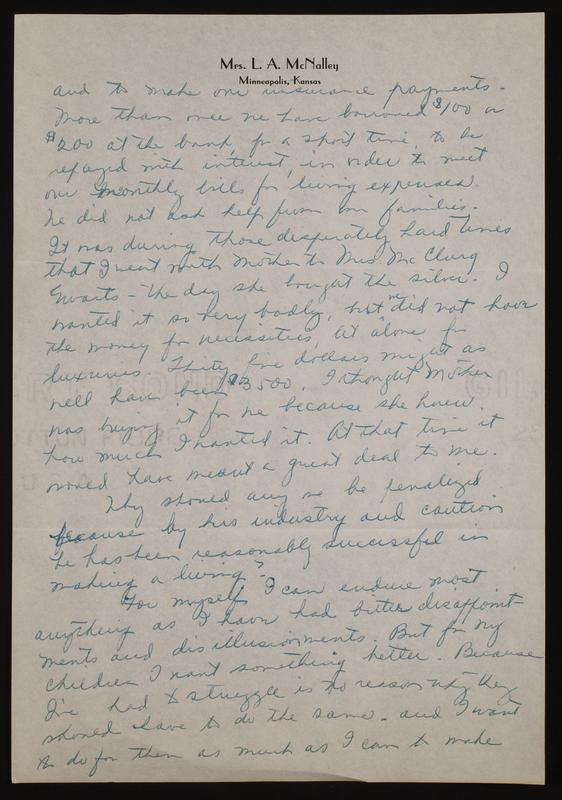 Mrs. L. A. McNalley
Minneapolis, Kansas
and to make our insurance payments.
More than once we have borrowed $100 or
$200 at the bank, for a short time, to be
repayed with interest, in order to meet
our monthly bills for living expenses.
We did not ask help from our families.
It was during those desperately hard times
that I went with Mother to Mrs. McClurg
- the day she bought the silver. I
wanted it so very badly, but we did not have
the money for necessities, let alone for
luxuries. Thirty five dollars might as
well have been $3500. I thought Mother
was buying it for me because she knew
how much I wanted it. At that time it
would have meant a great deal to me.
Why should any be penalized
because by his industry and caution
he has been reasonably successful in
making a living?
For myself I can endure most
anything as I have had bitter disappoint-
ments and disillusionments. But for my
children I want something better. Because
I've had to struggle is no reason why they
should have to do the same - and I want
to do for them as much as I can to make